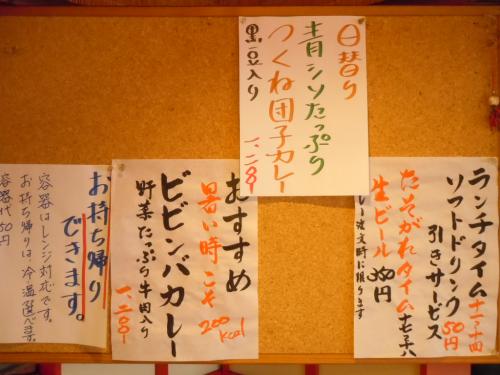 日替り
青シソたっぷり
つくね団子カレー
黒豆入り
ランチタイム
ソフトドリンク
50円
引きサービス
たそがれタイム
生ビール
350円
注文時に限ります
おすすめ
暑い時こそ
200
kcal
ビビンバカレー
野菜たっぷり牛肉入り
お持ち帰り
できます。
容器はレンジ対応です。
お持ち帰りは、冷温選べます。
容器代50円